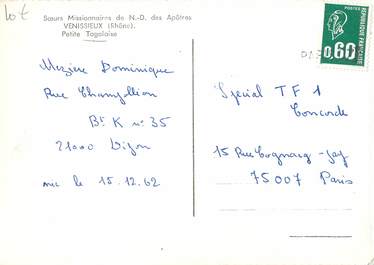 lot
Sœurs Missionnaires de N.-D. des Apôtres
VENISSIEUX (Rhône).
Petite Togolaise
Mezière Dominique
Rue Champollion
Bt K n° 35
21000 Dijon
née le 15.12.62
Spécial TF 1
Concorde
15 Rue Cognacq-Jay
75007 Paris
POSTES
0,60
REPUBLIQUE FRANÇAISE